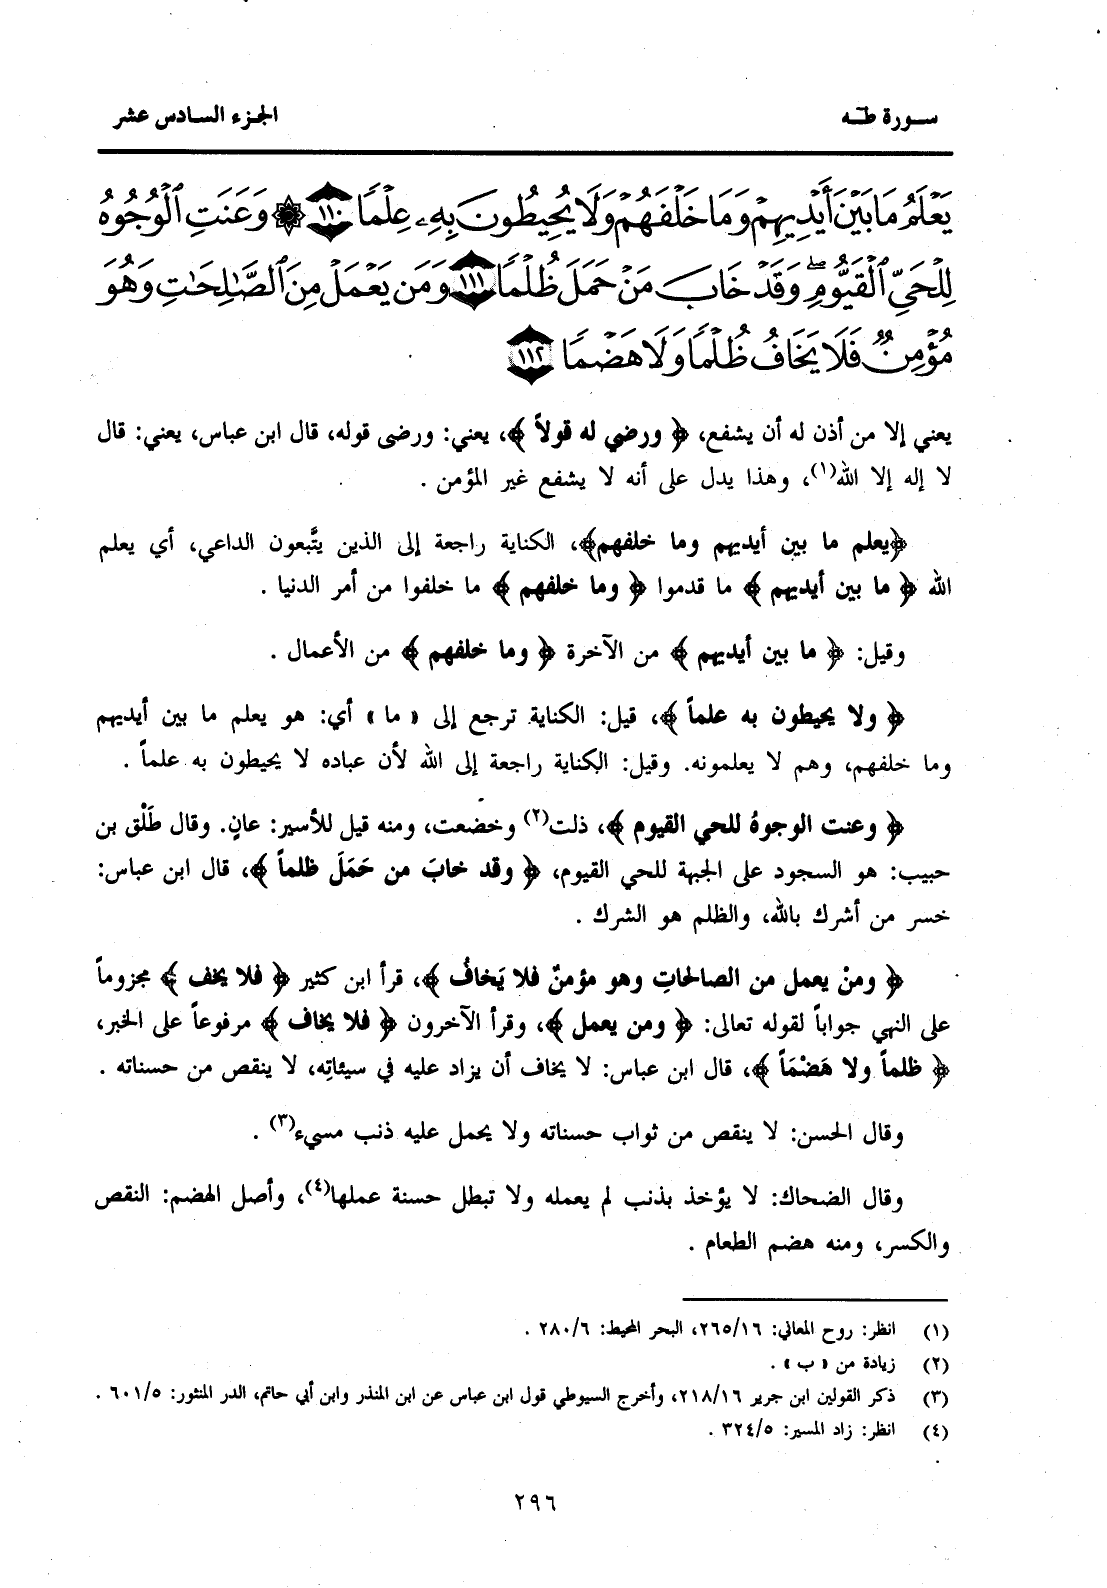 سورة طه
الجزء السادس عشر
يَعْلَمُ مَا بَيْنَ أَيْدِيهِمْ وَمَا خَلْفَهُمْ وَلَا يُحِيطُونَ بِهِۦ عِلْمًا ١١٠ ۞ وَعَنَتِ ٱلْوُجُوهُ
لِلْحَىِّ ٱلْقَيُّومِ ۖ وَقَدْ خَابَ مَنْ حَمَلَ ظُلْمًا ١١١ وَمَن يَعْمَلْ مِنَ ٱلصَّٰلِحَٰتِ وَهُوَ
مُؤْمِنٌ فَلَا يَخَافُ ظُلْمًا وَلَا هَضْمًا ١١٢
يعني إلا من أذن له أن يشفع، ﴿ ورضي له قولاً ﴾، يعني: ورضى قوله، قال ابن عباس، يعني: قال
لا إله إلا الله(١)، وهذا يدل على أنه لا يشفع غير المؤمن .
﴿يعلم ما بين أيديهم وما خلفهم﴾، الكناية راجعة إلى الذين يتَّبعون الداعي، أي يعلم
الله ﴿ ما بين أيديهم ﴾ ما قدموا ﴿ وما خلفهم ﴾ ما خلفوا من أمر الدنيا .
وقيل: ﴿ ما بين أيديهم ﴾ من الآخرة ﴿ وما خلفهم ﴾ من الأعمال .
﴿ ولا يحيطون به علماً ﴾، قيل: الكناية ترجع إلى « ما » أي: هو يعلم ما بين أيديهم
وما خلفهم، وهم لا يعلمونه. وقيل: الكناية راجعة إلى الله لأن عباده لا يحيطون به علماً .
﴿ وعنت الوجوهُ للحي القيوم ﴾، ذلت(٢) وخضعت، ومنه قيل للأسير: عانٍ. وقال طَلْق بن
حبيب: هو السجود على الجبهة للحي القيوم، ﴿ وقد خابَ من حَمَلَ ظلماً ﴾، قال ابن عباس:
خسر من أشرك بالله، والظلم هو الشرك .
﴿ ومنْ يعمل من الصالحاتِ وهو مؤمنٌ فلا يَخافُ ﴾، قرأ ابن كثير ﴿ فلا يخف ﴾ مجزوماً
على النهي جواباً لقوله تعالى: ﴿ ومن يعمل ﴾، وقرأ الآخرون ﴿ فلا يخاف ﴾ مرفوعاً على الخبر،
﴿ ظلماً ولا هَضْمَاً ﴾، قال ابن عباس: لا يخاف أن يزاد عليه في سيئاتِه، لا ينقص من حسناته .
وقال الحسن: لا ينقص من ثواب حسناته ولا يحمل عليه ذنب مسيء(٣) .
وقال الضحاك: لا يؤخذ بذنب لم يعمله ولا تبطل حسنة عملها(٤)، وأصل الهضم: النقص
والكسر، ومنه هضم الطعام .
(١) انظر: روح المعاني: ٢٦٥/١٦، البحر المحيط: ٢٨٠/٦ .
(٢) زيادة من « ب » .
(٣) ذكر القولين ابن جرير ٢١٨/١٦، وأخرج السيوطي قول ابن عباس عن ابن المنذر وابن أبي حاتم، الدر المنثور: ٦٠١/٥ .
(٤) انظر: زاد المسير: ٣٢٤/٥ .
٢٩٦